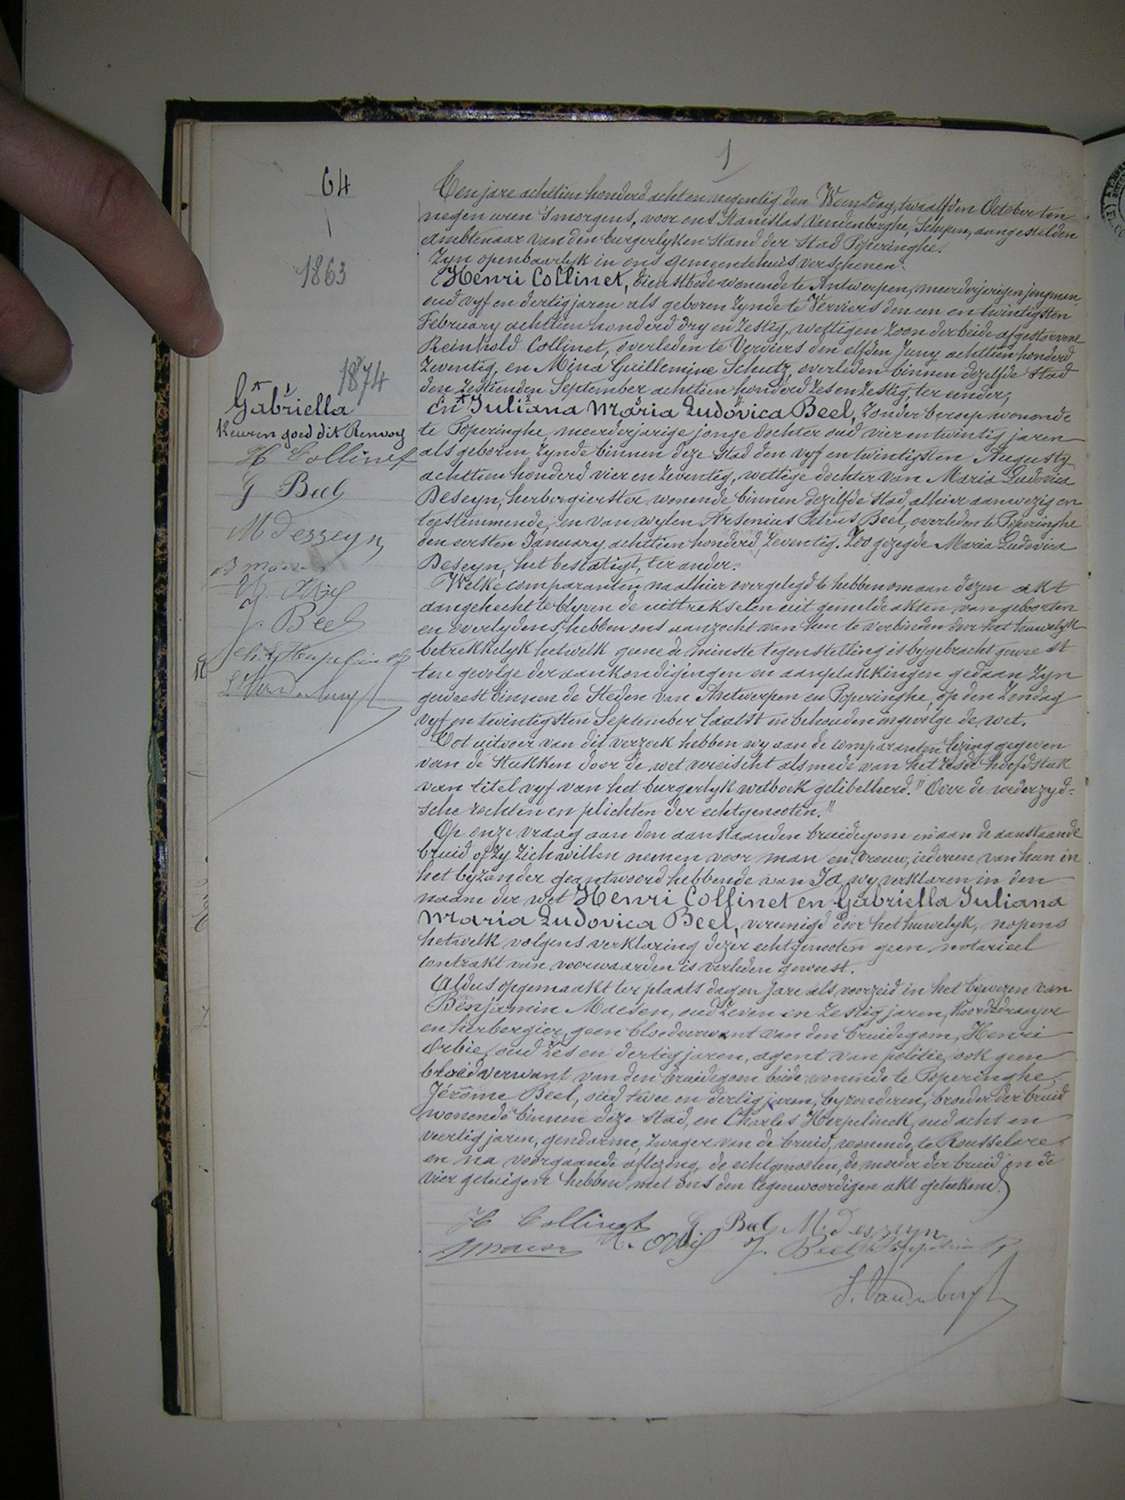 1
64
1863
1874
Gabriella
Keuren goed dit Renvoy
H Collinet
G Beel
M Deseyn
B Maesen
H. Orbie
J. Beel
Ch. Herpelinck
S. Vandenberghe
Ten jare achtien honderd acht en negentig den Woensdag, twaalfden October ten
negen uren 's morgens, voor ons Stanislas Vandenberghe, Schepen, aangestelden
ambtenaar van den burgerlyken stand der Stad Poperinghe.
Zyn openbaarlyk in ons gemeentehuis verschenen:
Henri Collinet, dienstbode wonende te Antwerpen, meerderjarigen jongman
oud vyf en dertig jaren als geboren zynde te Verviers den een en twintigsten
February achtien honderd dry en zestig, wettigen zoon der beide afgestorvene
Reinhold Collinet, overleden te Verviers den elfden Juny achtien honderd
zeventig, en Mina Guillemine Schutz, overleden binnen dezelfde stad
den zestienden September achtien honderd zes en zestig, ter eender;
En Juliana Maria Ludovica Beel, zonder beroep wonende
te Poperinghe, meerderjarige jonge dochter oud vier en twintig jaren
als geboren zynde binnen deze Stad den vyf en twintigsten Augusty
achttien honderd vier en zeventig, wettige dochter van Maria Ludovica
Deseyn, herbergierster, wonende binnen dezelfde stad, alhier aanwezig en
toestemmende, en van wylen Arsenius Petrus Beel, overleden te Poperinghe
den eersten January achttien honderd zeventig. Zoo gezegde Maria Ludovica
Deseyn, het bestatigt, ter ander.
Welke comparanten, na alhier overgelegd te hebben om aan dezen akt
aangehecht te blyven de uittrekselen uit gemelde akten van geboorten
en overlydens, hebben ons aanzocht van hun te verbinden door het huwelyk
betrekkelyk hetwelk geene de minste tegenstelling is bygebracht geweest
ten gevolge der aankondigingen en aanplakkingen gedaan zyn
geweest binnen de Steden van Antwerpen en Poperinghe, op den Zondag
vyf en twintigsten September laatst en behouden ingevolge de wet.
Tot uitvoer van dit verzoek hebben wy aan de comparanten lezing gegeven
van de Stukken door de wet vereischt alsmede van het zesde hoofdstuk
van titel vyf van het burgerlyk wetboek gelibelleerd. "Over de wederzyd-
sche rechten en plichten der echtgenooten."
Op onze vraag aan den aanstaanden bruidegom en aan de aanstaande
bruid of zy zich willen nemen voor man en vrouw, iedereen van hun in
het byzonder geantwoord hebbende van Ja, wy verklaren in den
naam der wet Henri Collinet en Gabriella Juliana
Maria Ludovica Beel, vereenigd door het huwelyk, nopens
hetwelk volgens verklaring dezer echtgenooten geen notarieel
contrakt van voorwaarden is verleden geweest.
Aldus opgemaakt ter plaats dag en Jare als voorzeid in het bywezen van
Benjamin Maesen, oud zeven en zestig jaren, Koorddraayer
en herbergier, geen bloedverwant van den bruidegom, Henri
Orbie, oud zes en dertig jaren, agent van politie, ook geen
bloedverwant van den bruidegom beide wonende te Poperinghe,
Jérôme Beel, oud twee en dertig jaren, byzonderen, broeder der bruid
wonende binnen deze stad, en Charles Herpelinck, oud acht en
veertig jaren, gendarme, zwager van de bruid, wonende te Rousselare
en na voorgaande aflezing, de echtgenooten, de moeder der bruid en de
vier getuigen hebben met ons den tegenwoordigen akt geteekend.
H Collinet G Beel M. Deseyn
B Maesen H. Orbie J. Beel Ch. Herpelinck
S. Vandenberghe